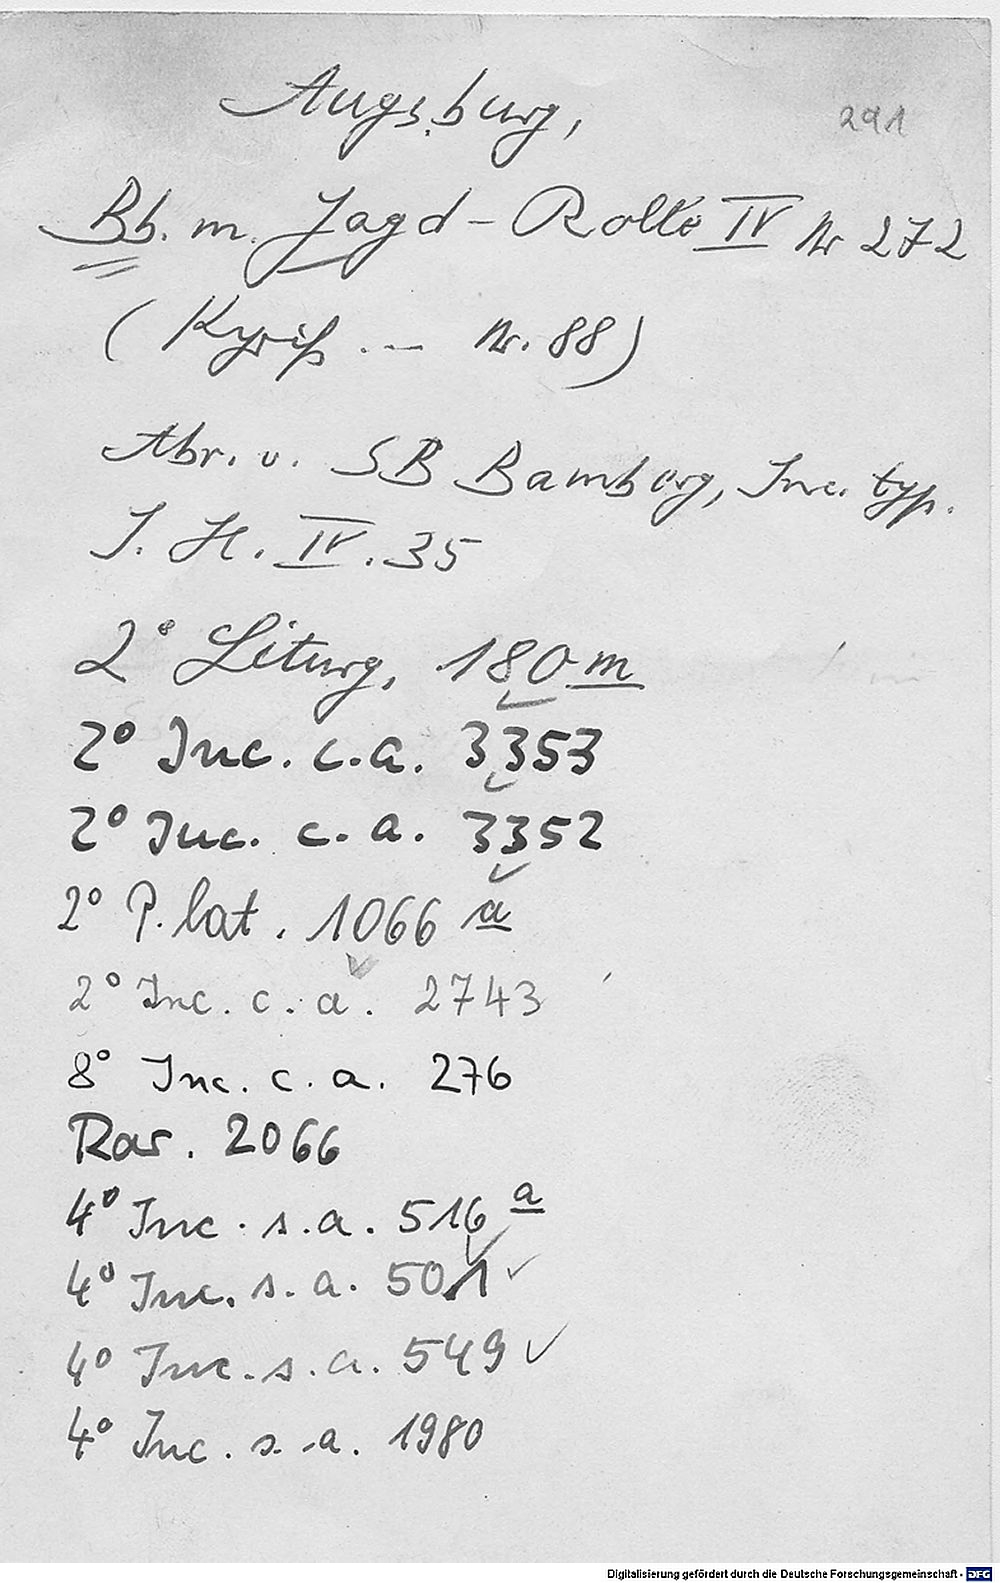 Augsburg,
291
Bb. m. Jagd-Rolle IV Nr 272
(Kyriß .— Nr. 88)
Abr. v. SB Bamberg, Inc. typ.
J. H. IV. 35
2° Liturg. 180 m
2° Inc. c.a. 3353
2° Inc. c.a. 3352
2° P. lat. 1066 a
2° Inc. c.a. 2743
8° Inc. c.a. 276
Rar. 2066
4° Inc. s.a. 516 a
4° Inc. s.a. 501
4° Inc. s.a. 549
4° Inc. s.a. 1980
Digitalisierung gefördert durch die Deutsche Forschungsgemeinschaft - DFG